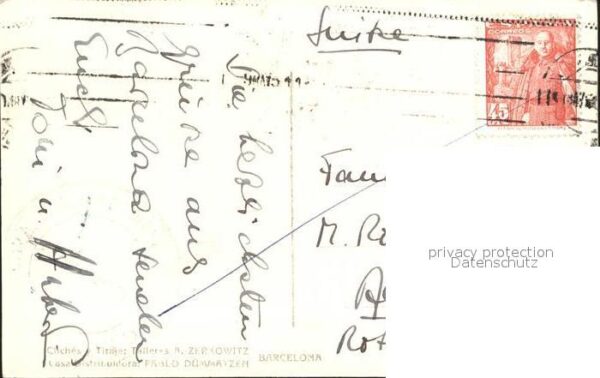 Suisse
Die herzlichsten
Grüsse aus
Barcelona senden
Euch
u.
Fam
M. R
Rot
CORREOS
45
CTS
Clichés y Tiraje: Talleres A. ZERKOWITZ
Casa distribuidora: PABLO DÜMMATZEN BARCELONA
privacy protection
Datenschutz